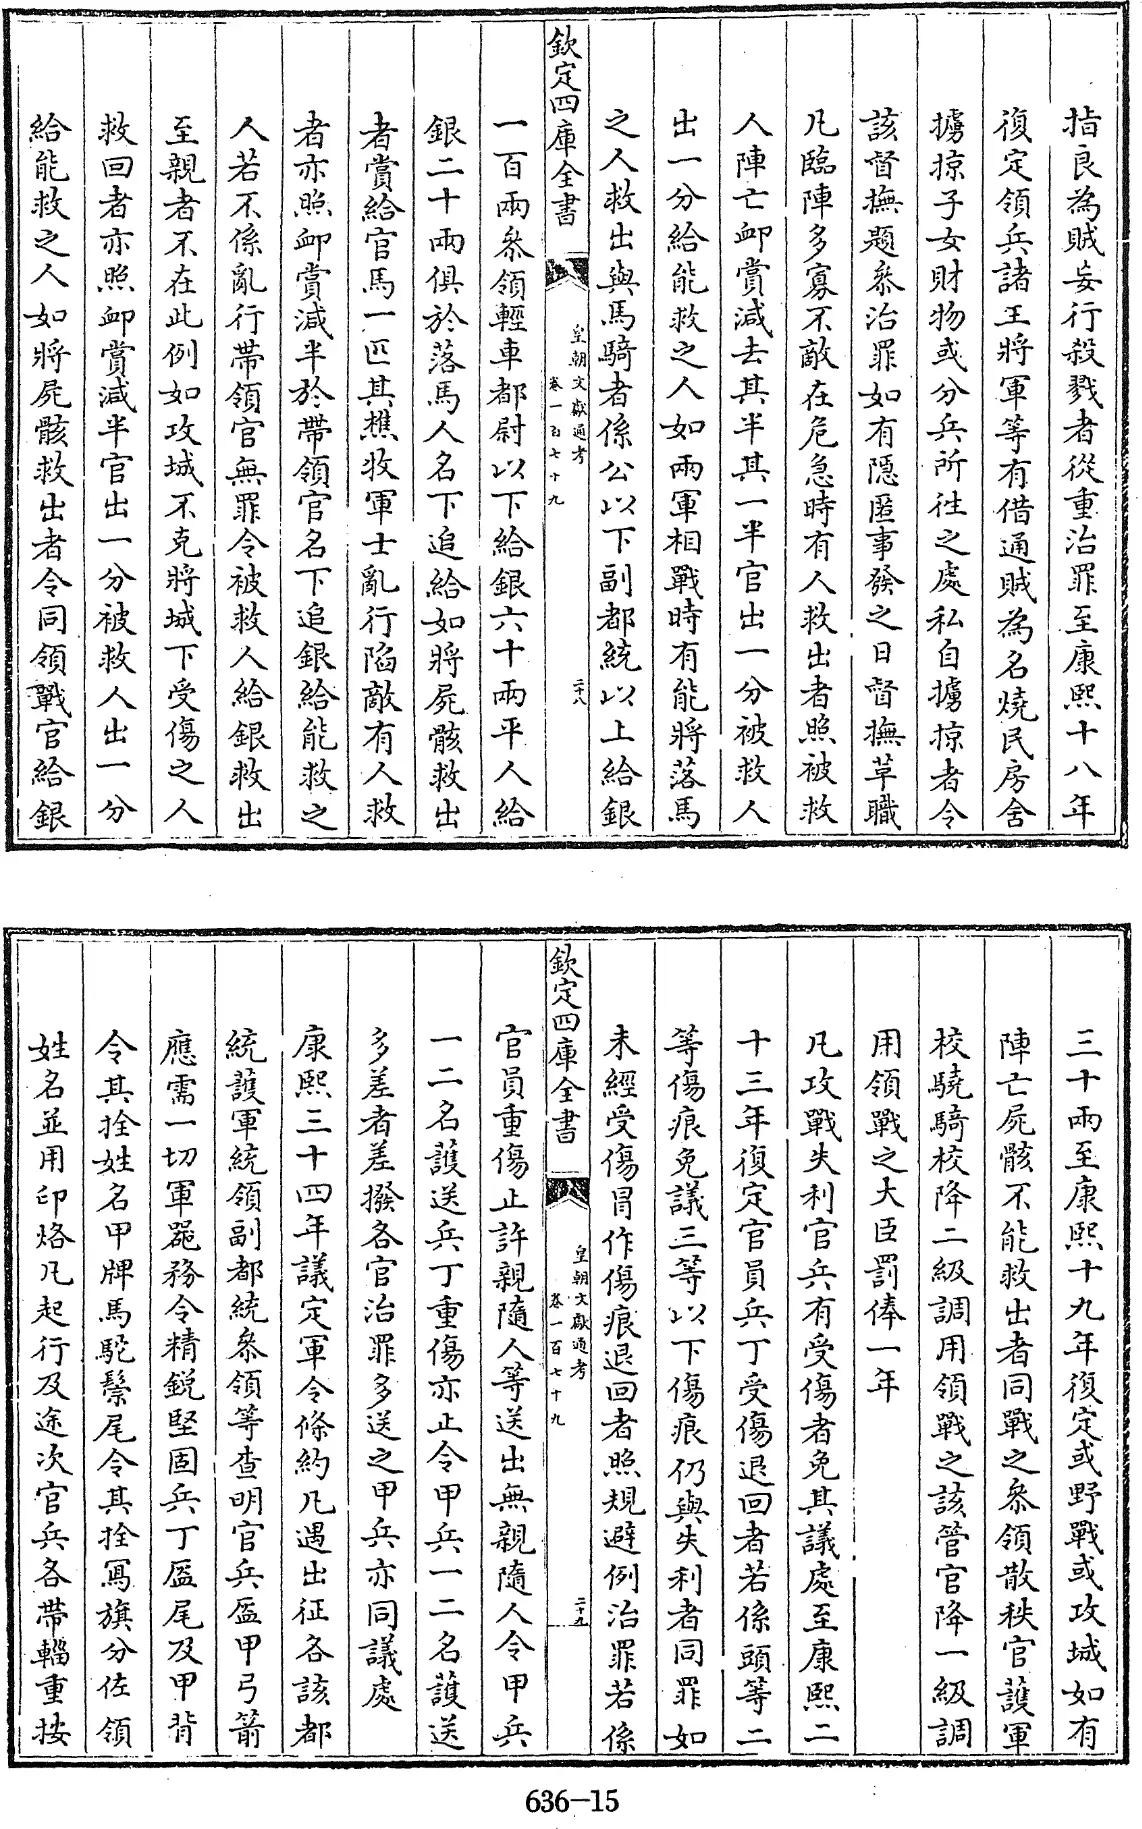 指良為賊妄行殺戮者從重治罪至康熙十八年
復定領兵諸王將軍等有借通賊為名燒民房舍
擄掠子女財物或分兵所往之處私自擄掠者令
該督撫題叅治罪如有隱匿事發之日督撫革職
凡臨陣多寡不敵在危急時有人救出者照被救
人陣亡卹賞減去其半其一半官出一分被救人
出一分給能救之人如兩軍相戰時有能將落馬
之人救出與馬騎者係公以下副都統以上給銀
欽定四庫全書
皇朝文獻通考
卷一百七十九
二十八
一百兩叅領輕車都尉以下給銀六十兩平人給
銀二十兩俱於落馬人名下追給如將屍骸救出
者賞給官馬一匹其樵牧軍士亂行陷敵有人救
者亦照卹賞減半於帶領官名下追銀給能救之
人若不係亂行帶領官無罪令被救人給銀救出
至親者不在此例如攻城不克將城下受傷之人
救回者亦照卹賞減半官出一分被救人出一分
給能救之人如將屍骸救出者令同領戰官給銀
三十兩至康熙十九年復定或野戰或攻城如有
陣亡屍骸不能救出者同戰之叅領散秩官護軍
校驍騎校降二級調用領戰之該管官降一級調
用領戰之大臣罰俸一年
凡攻戰失利官兵有受傷者免其議處至康熙二
十三年復定官員兵丁受傷退回者若係頭等二
等傷痕免議三等以下傷痕仍與失利者同罪如
未經受傷冒作傷痕退回者照規避例治罪若係
欽定四庫全書
皇朝文獻通考
卷一百七十九
二十九
官員重傷止許親隨人等送出無親隨人令甲兵
一二名護送兵丁重傷亦止令甲兵一二名護送
多差者差撥各官治罪多送之甲兵亦同議處
康熙三十四年議定軍令條約凡遇出征各該都
統護軍統領副都統叅領等查明官兵盔甲弓箭
應需一切軍器務令精銳堅固兵丁盔尾及甲背
令其拴姓名甲牌馬駝鬃尾令其拴寫旗分佐領
姓名並用印烙凡起行及途次官兵各帶輜重按
636-15